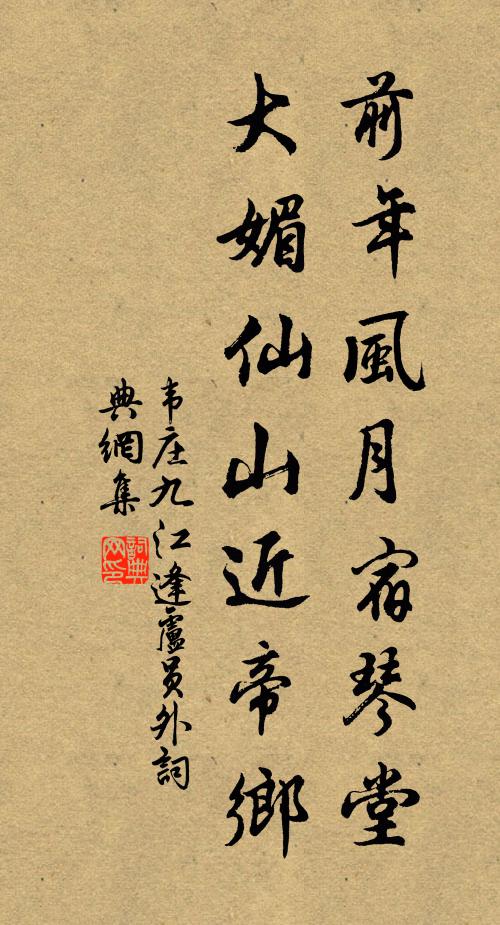 前年風月宿琴堂
大媚仙山近帝鄉
韦庄九江逢盧员外詞
典網集
詞典
网印